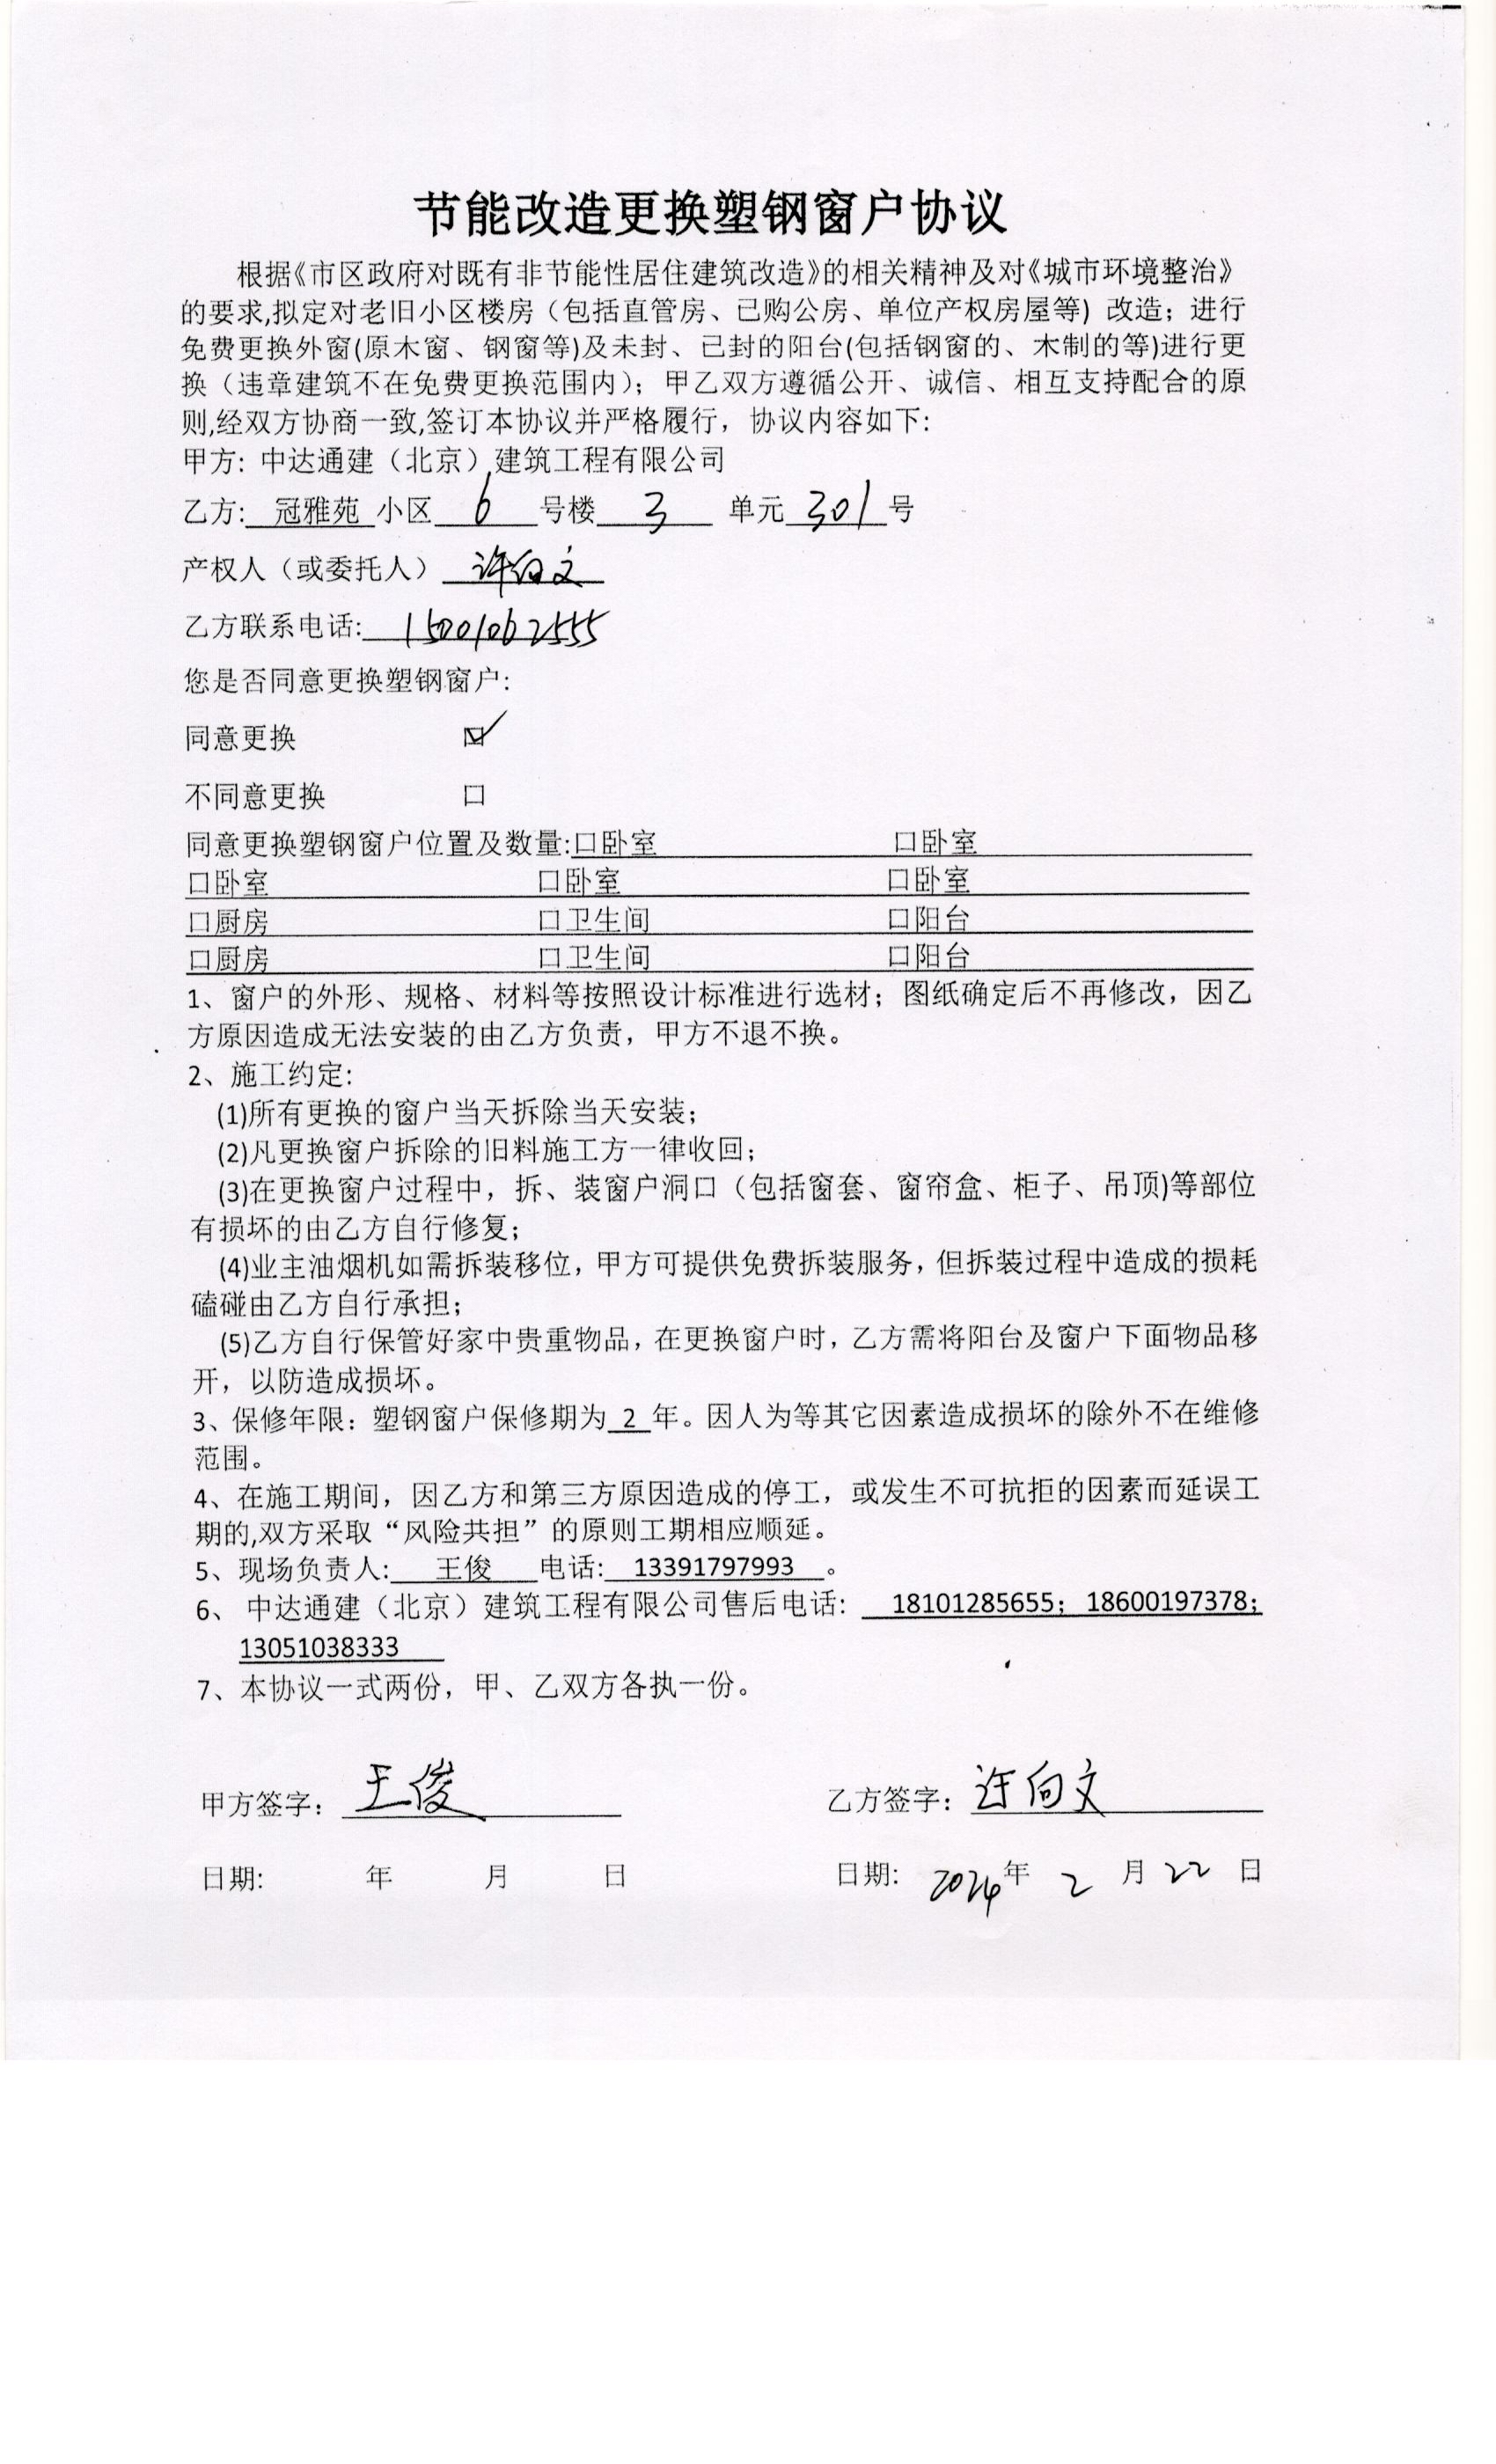 节能改造更换塑钢窗户协议
根据《市区政府对既有非节能性居住建筑改造》的相关精神及对《城市环境整治》
的要求,拟定对老旧小区楼房（包括直管房、已购公房、单位产权房屋等) 改造；进行
免费更换外窗(原木窗、钢窗等)及未封、已封的阳台(包括钢窗的、木制的等)进行更
换（违章建筑不在免费更换范围内）；甲乙双方遵循公开、诚信、相互支持配合的原
则,经双方协商一致,签订本协议并严格履行，协议内容如下:
甲方: 中达通建（北京）建筑工程有限公司
乙方: 冠雅苑 小区 6 号楼 3 单元 301 号
产权人（或委托人） 许向文
乙方联系电话: 15001062555
您是否同意更换塑钢窗户:
同意更换 ☑
不同意更换 口
同意更换塑钢窗户位置及数量:口卧室 口卧室
口卧室 口卧室 口卧室
口厨房 口卫生间 口阳台
口厨房 口卫生间 口阳台
1、窗户的外形、规格、材料等按照设计标准进行选材；图纸确定后不再修改，因乙
方原因造成无法安装的由乙方负责，甲方不退不换。
2、施工约定:
(1)所有更换的窗户当天拆除当天安装；
(2)凡更换窗户拆除的旧料施工方一律收回；
(3)在更换窗户过程中，拆、装窗户洞口（包括窗套、窗帘盒、柜子、吊顶)等部位
有损坏的由乙方自行修复；
(4)业主油烟机如需拆装移位，甲方可提供免费拆装服务，但拆装过程中造成的损耗
磕碰由乙方自行承担；
(5)乙方自行保管好家中贵重物品，在更换窗户时，乙方需将阳台及窗户下面物品移
开，以防造成损坏。
3、保修年限：塑钢窗户保修期为 2 年。因人为等其它因素造成损坏的除外不在维修
范围。
4、在施工期间，因乙方和第三方原因造成的停工，或发生不可抗拒的因素而延误工
期的,双方采取“风险共担”的原则工期相应顺延。
5、现场负责人: 王俊 电话: 13391797993 。
6、 中达通建（北京）建筑工程有限公司售后电话: 18101285655；18600197378；
13051038333
7、本协议一式两份，甲、乙双方各执一份。
甲方签字： 王俊 乙方签字： 许向文
日期: 年 月 日 日期: 2024年 2 月 22 日